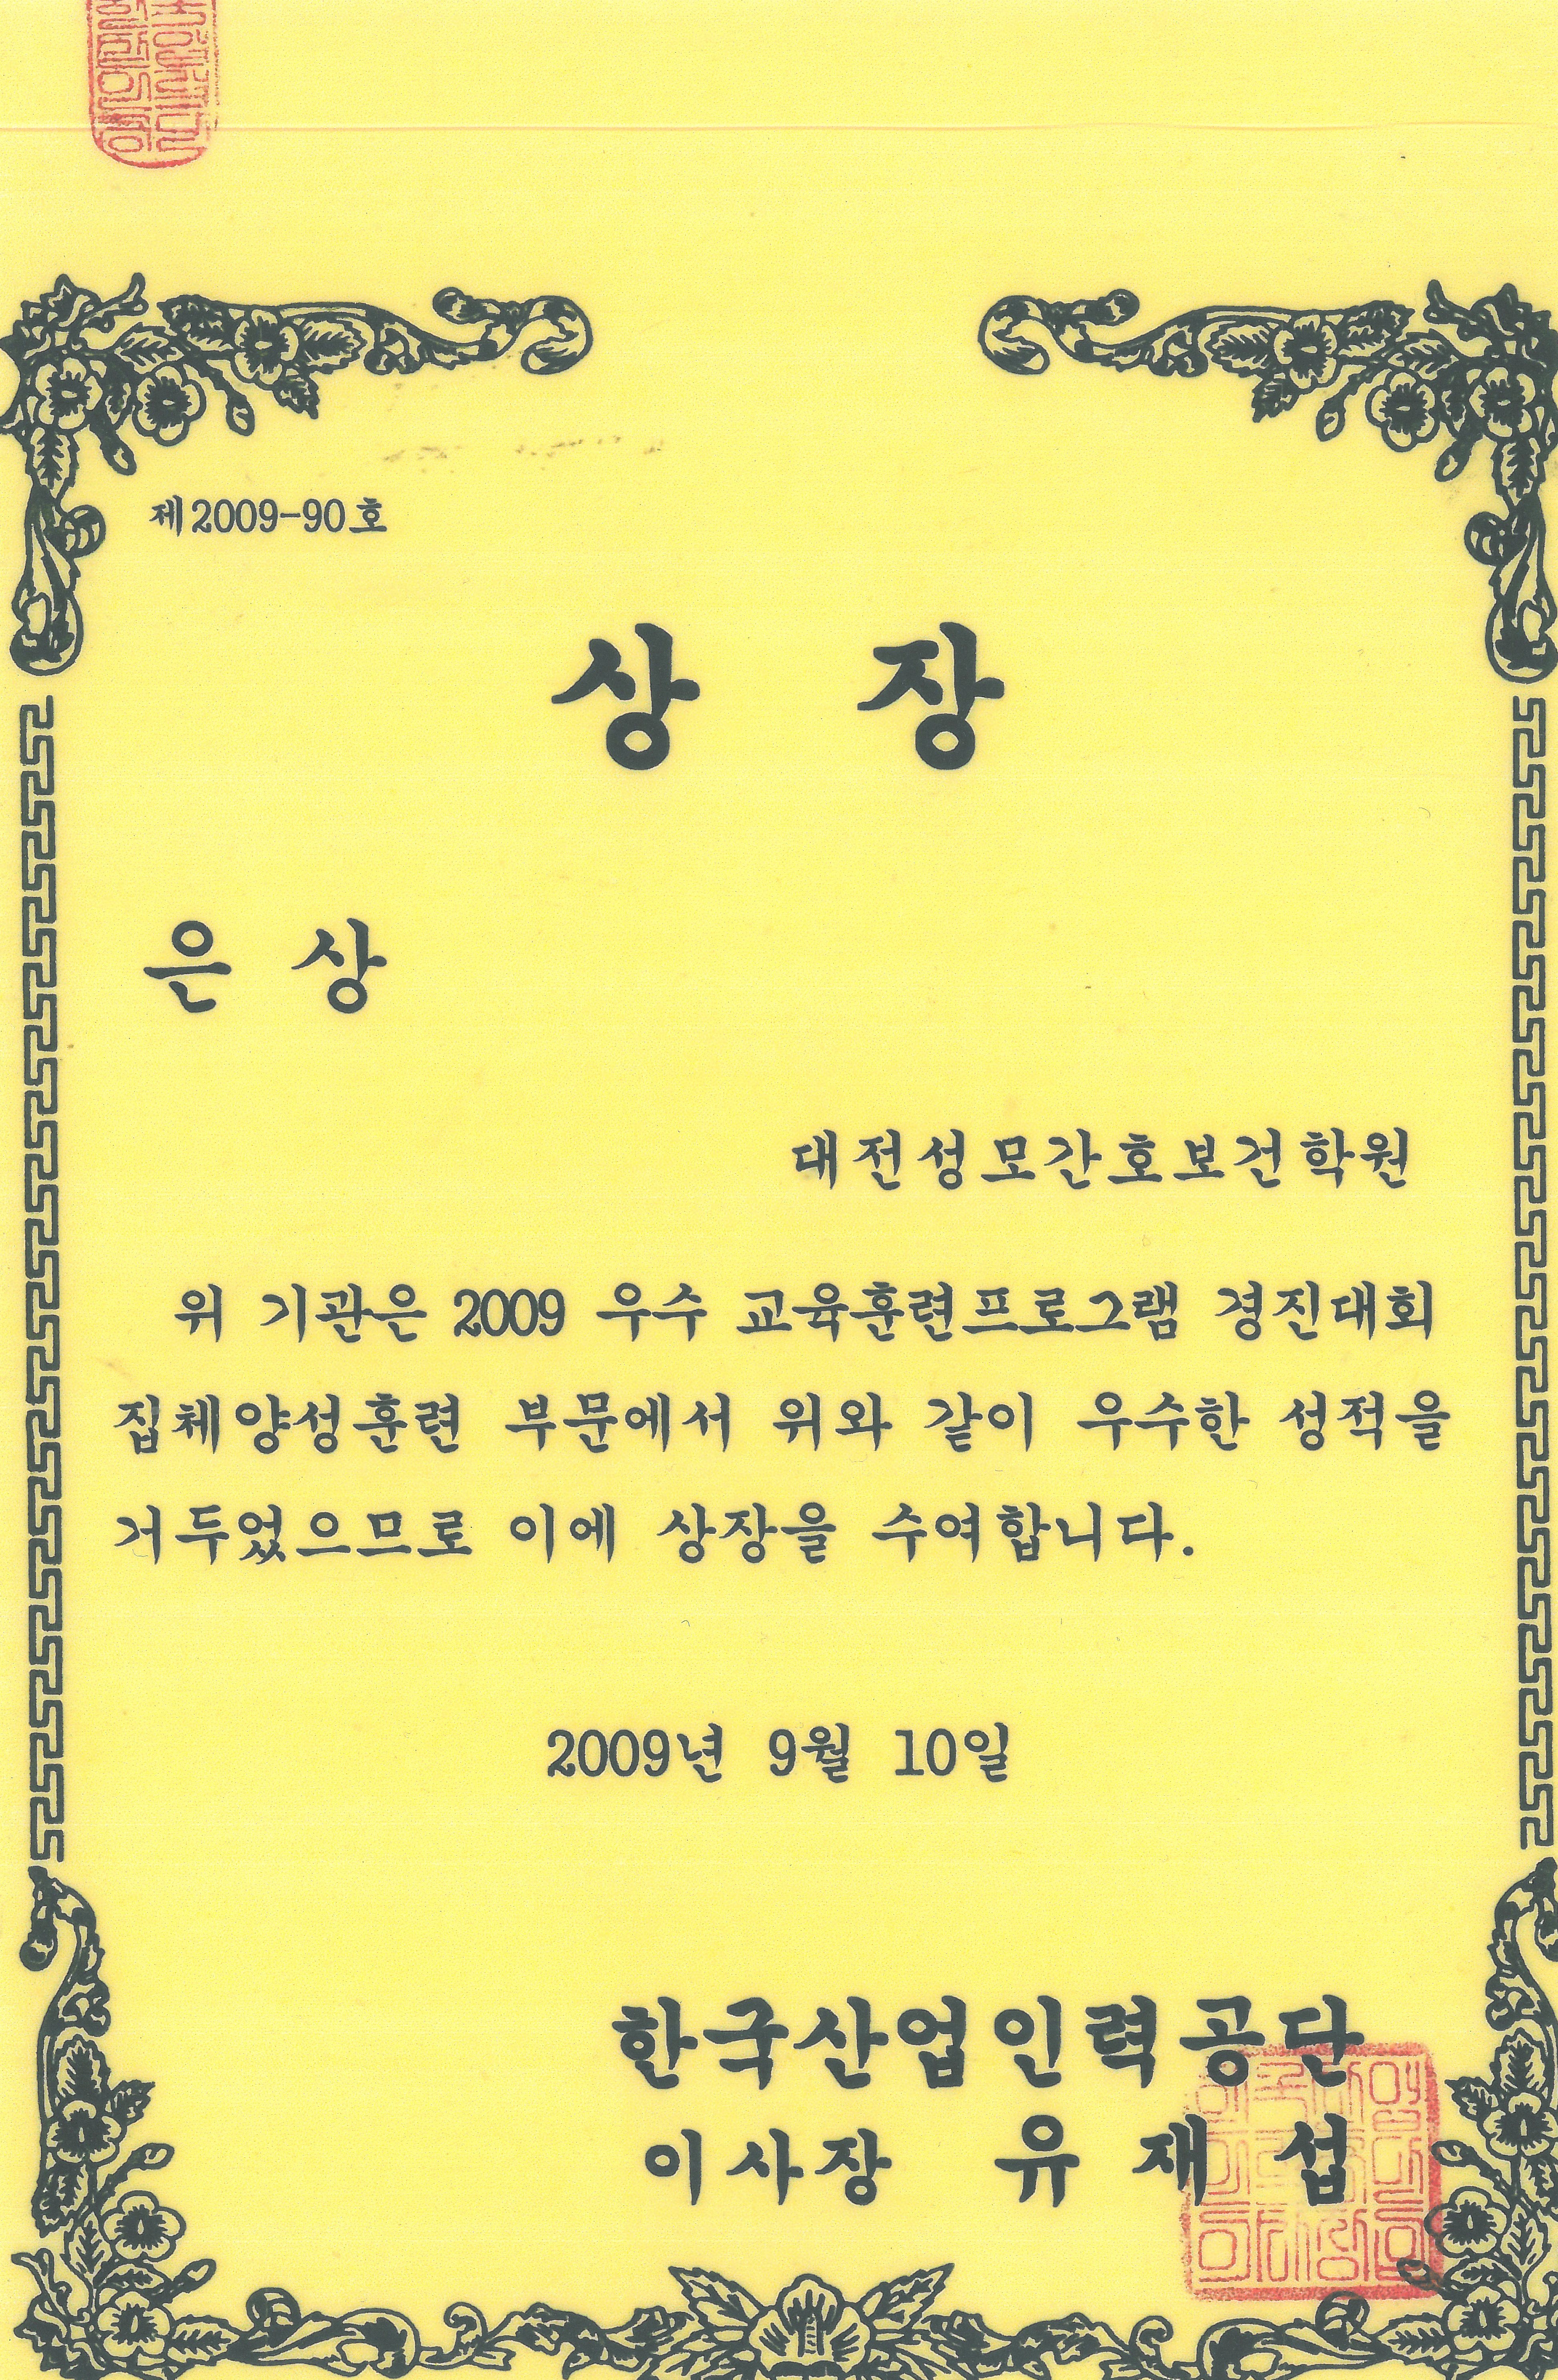 제2009-90호
상 장
은 상
대전성모간호보건학원
위 기관은 2009 우수 교육훈련프로그램 경진대회
집체양성훈련 부문에서 위와 같이 우수한 성적을
거두었으므로 이에 상장을 수여합니다.
2009년 9월 10일
한국산업인력공단
이사장 유재섭